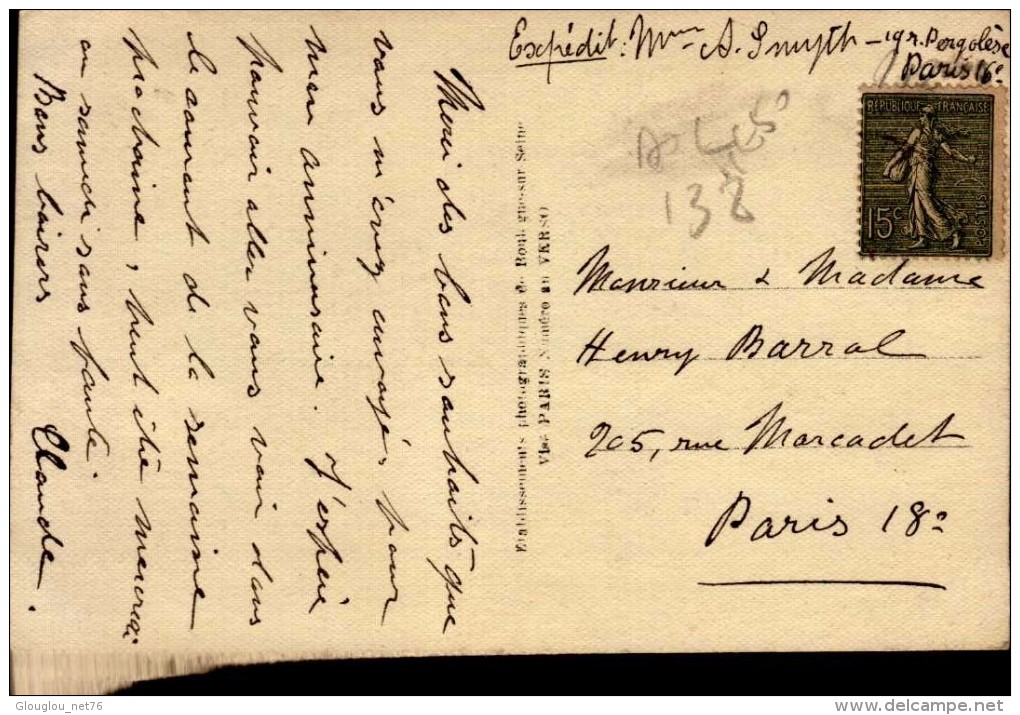 Expédit: Mme A. Smyth – 19 r. Pergolèse
Paris 16e
RÉPUBLIQUE FRANÇAISE
15c
POSTES
138
Monsieur & Madame
Henry Barral
205, rue Marcadet
Paris 18e
Etablissements photographiques de Boulogne-sur-Seine
Visé PARIS Numéro au VERSO
Merci des bons souhaits que
vous m'avez envoyés pour
mon anniversaire. J'espère
pouvoir aller vous voir dans
le courant de la semaine
prochaine, peut être mercredi
ou samedi sans faute.
Bons baisers Claude.
Glouglou_net76
delcampe.net